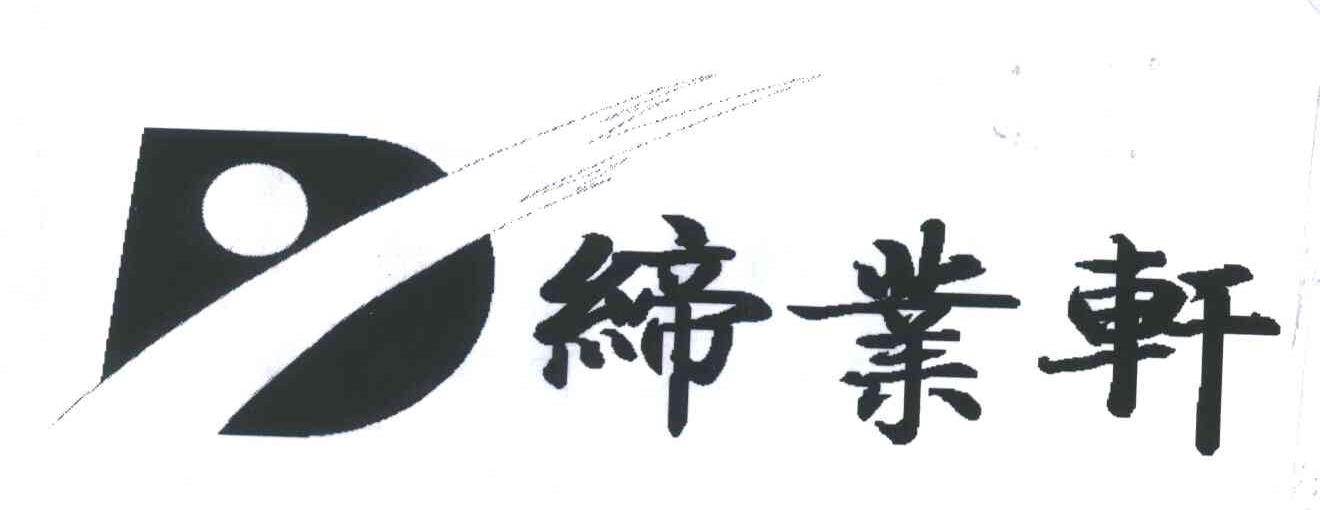 締業軒